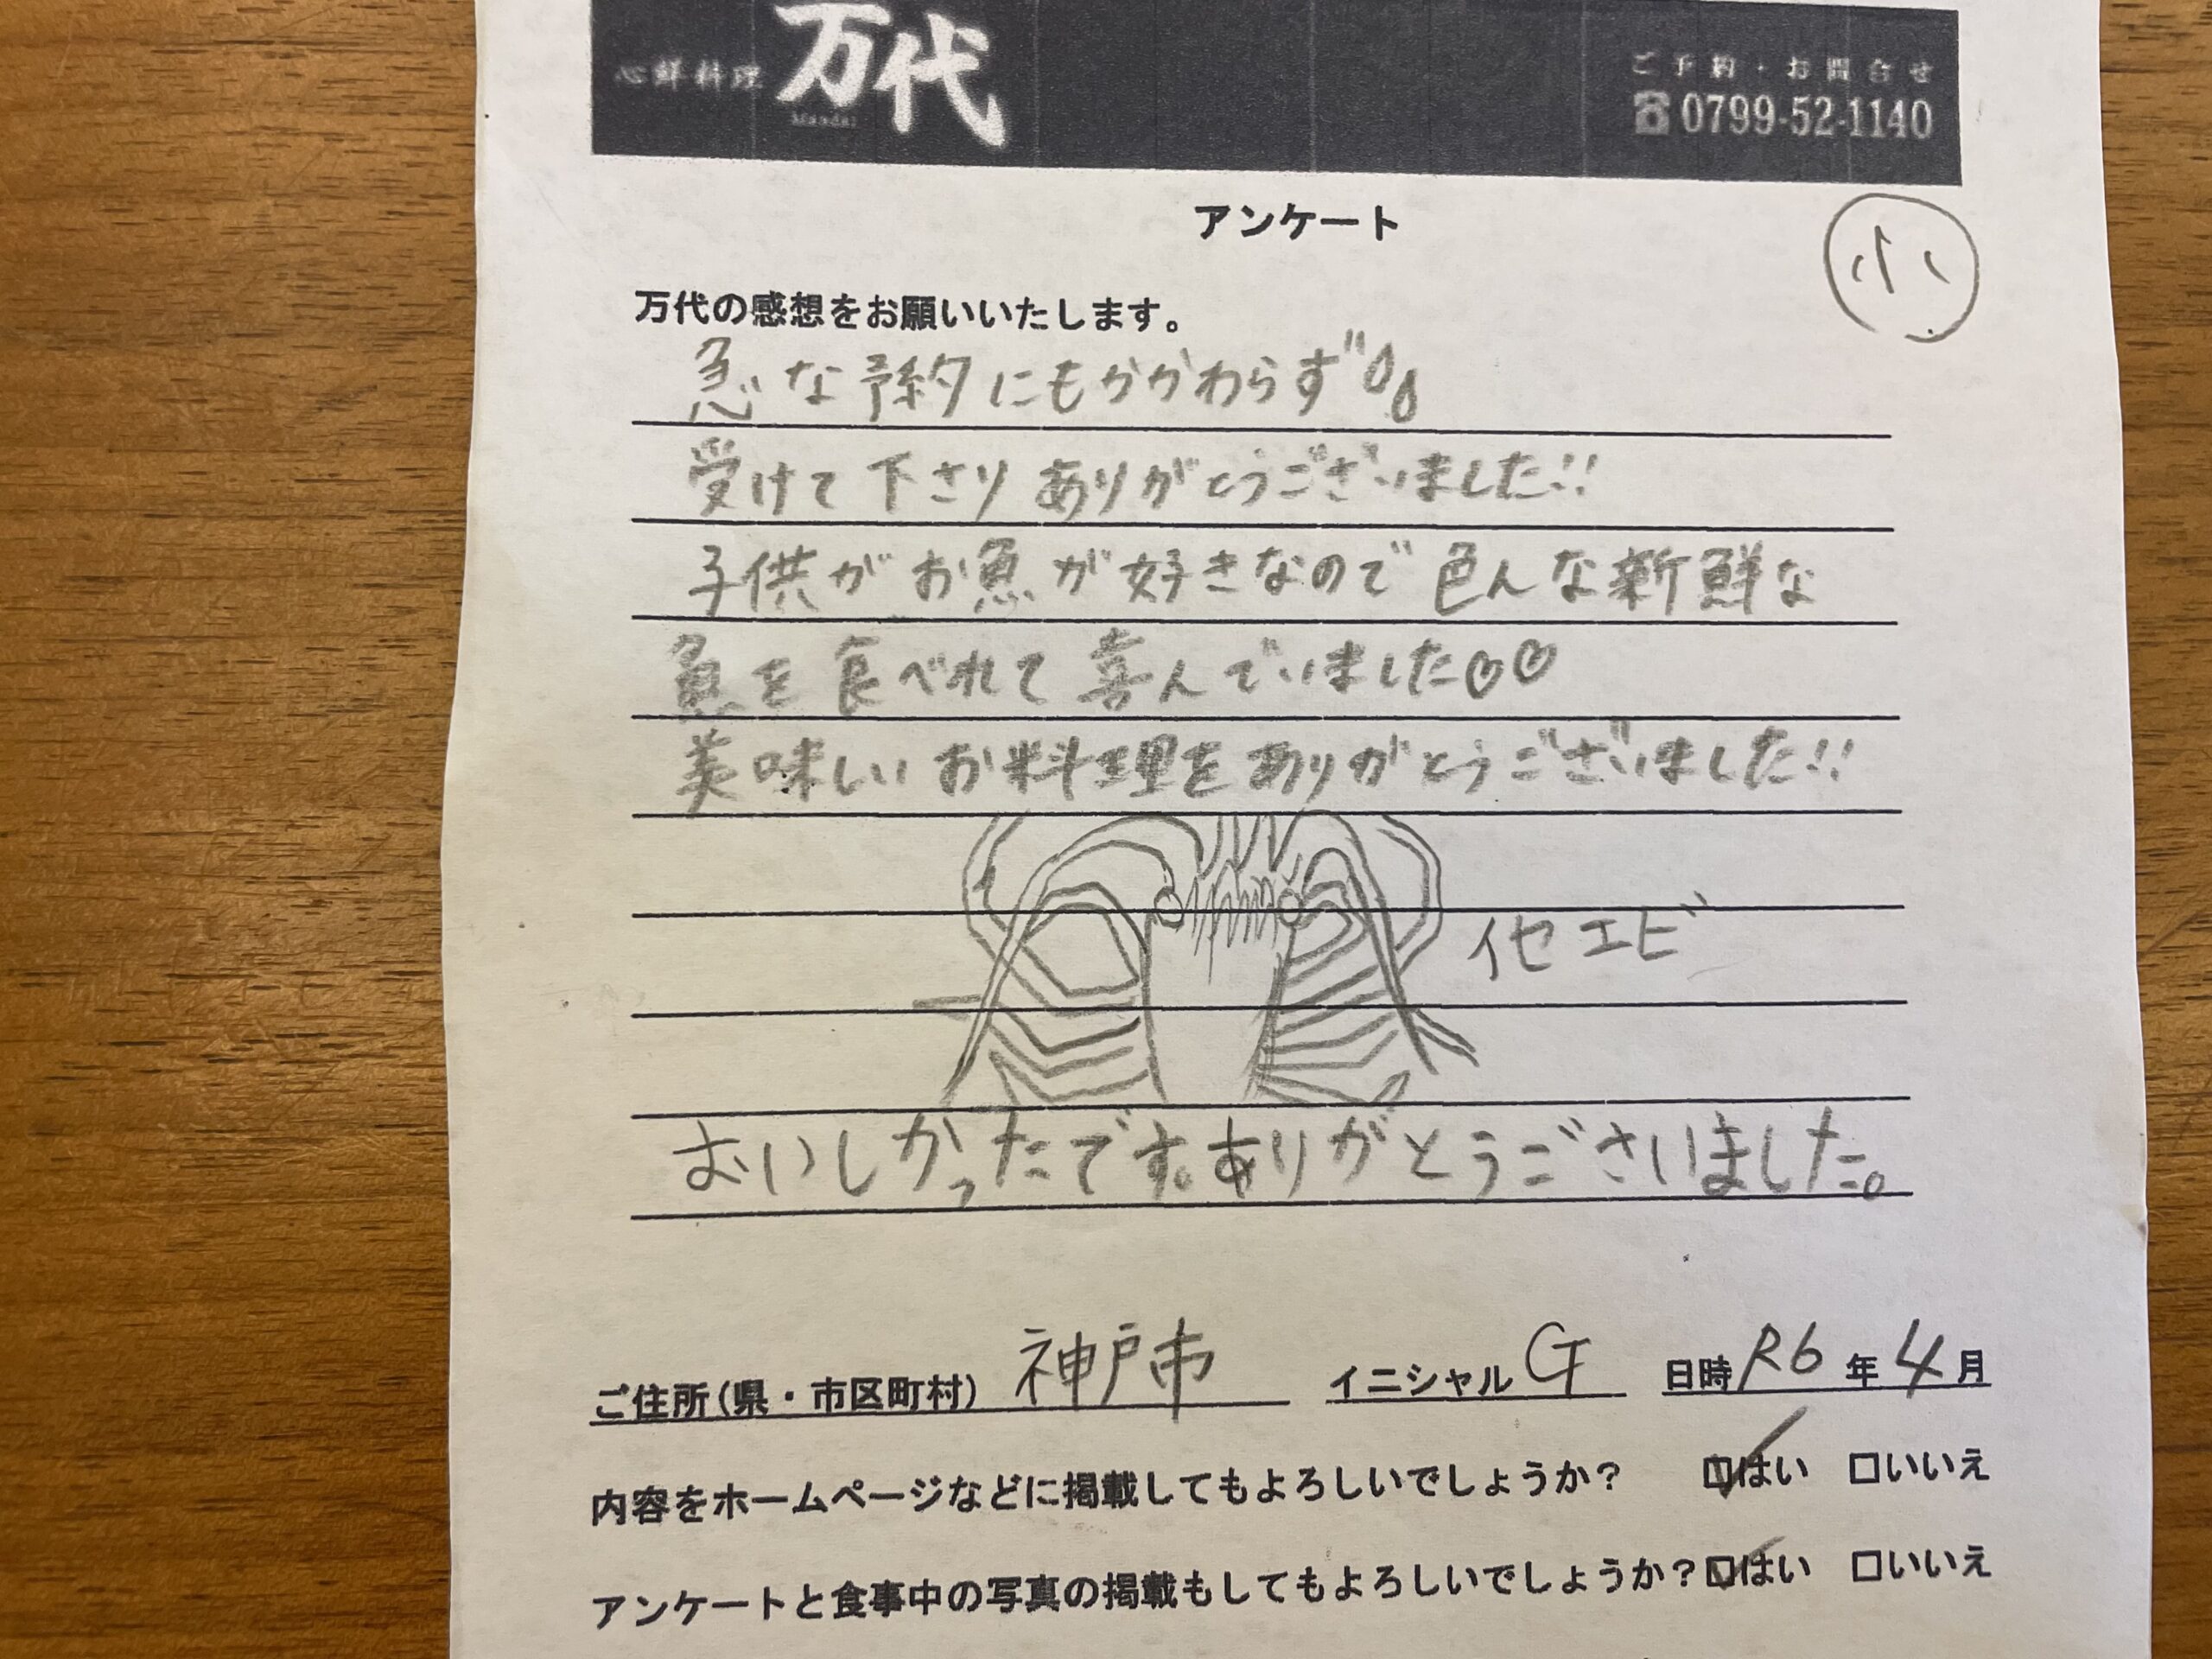 心鮮料理 万代
Mandai
ご予約・お問合せ
☎0799-52-1140
アンケート
小
万代の感想をお願いいたします。
急な予約にもかかわらず
受けて下さりありがとうございました!!
子供がお魚が好きなので色んな新鮮な
魚を食べれて喜んでいました♡♡
美味しいお料理をありがとうございました!!
イセエビ
おいしかったです。ありがとうございました。
ご住所(県・市区町村) 神戸市 イニシャル G 日時 R6 年 4 月
内容をホームページなどに掲載してもよろしいでしょうか? ☑はい □いいえ
アンケートと食事中の写真の掲載もしてもよろしいでしょうか? ☑はい □いいえ